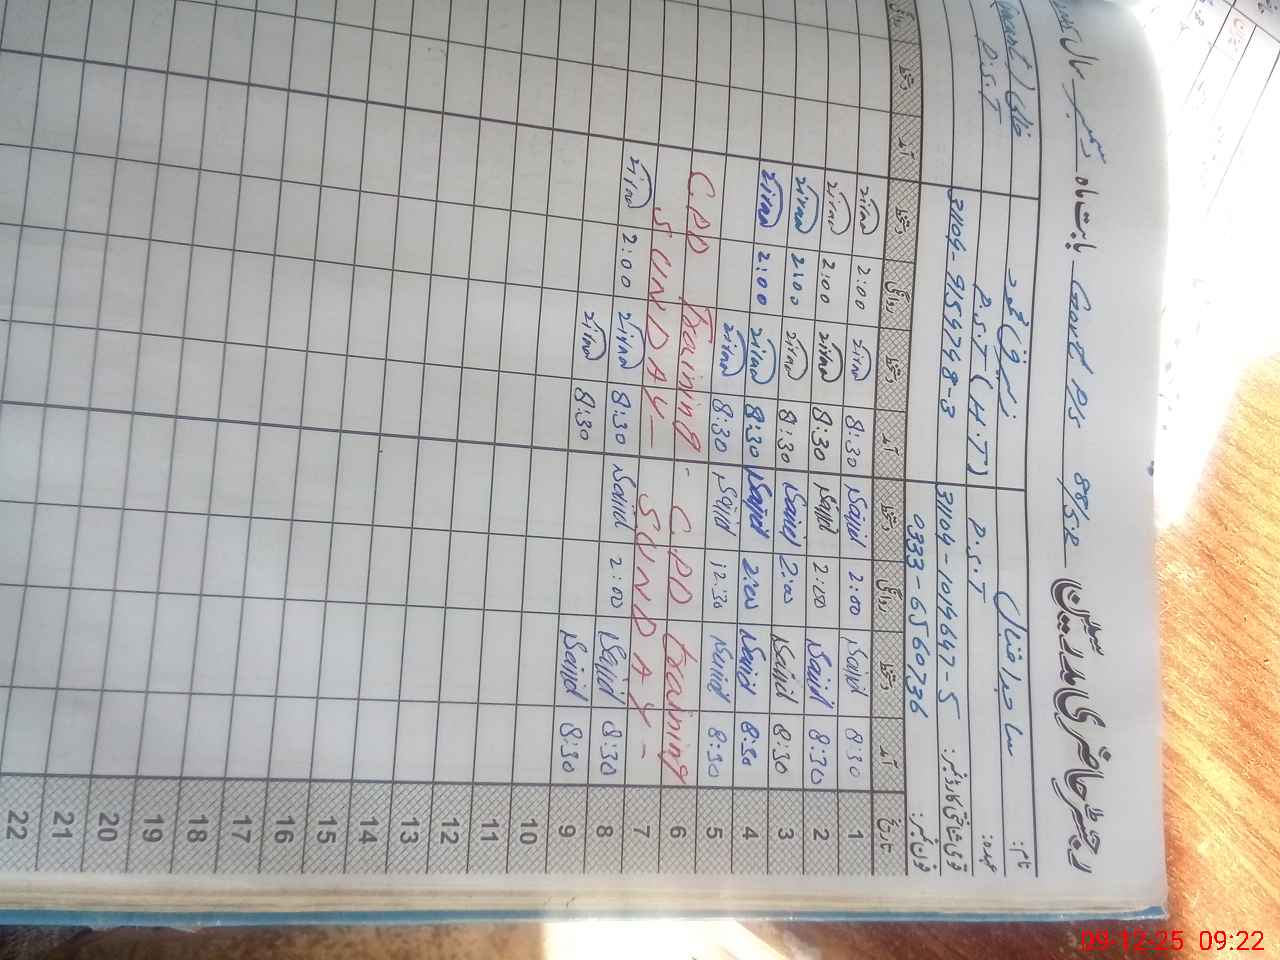 رجسٹر حاضری مدرسین Govt P/S 88/5.R بابت ماہ دسمبر سال
نام: ساجد اقبال
عہدہ: P.S.T P.S.T (H.T) خالی P.S.T
قومی شناختی کارڈ نمبر: 31104-1019647-5 31104-9159748-3
فون نمبر: 0333-6560736
تاریخ آمد دستخط روانگی دستخط آمد دستخط روانگی دستخط آمد دستخط
1 8:30 Sajid 2:00 Sajid 8:30 2:00
2 8:30 Sajid 2:00 Sajid 8:30 2:00
3 8:30 Sajid 2:00 Sajid 8:30 2:00
4 8:30 Sajid 2:00 Sajid 8:30 2:00
5 8:30 Sajid 12:30 Sajid 8:30
6 CPD training - CPD training
7 SUNDAY - SUNDAY -
8 8:30 Sajid 2:00 Sajid 8:30 2:00
9 8:30 Sajid 8:30
10
11
12
13
14
15
16
17
18
19
20
21
22
09-12-25 09:22